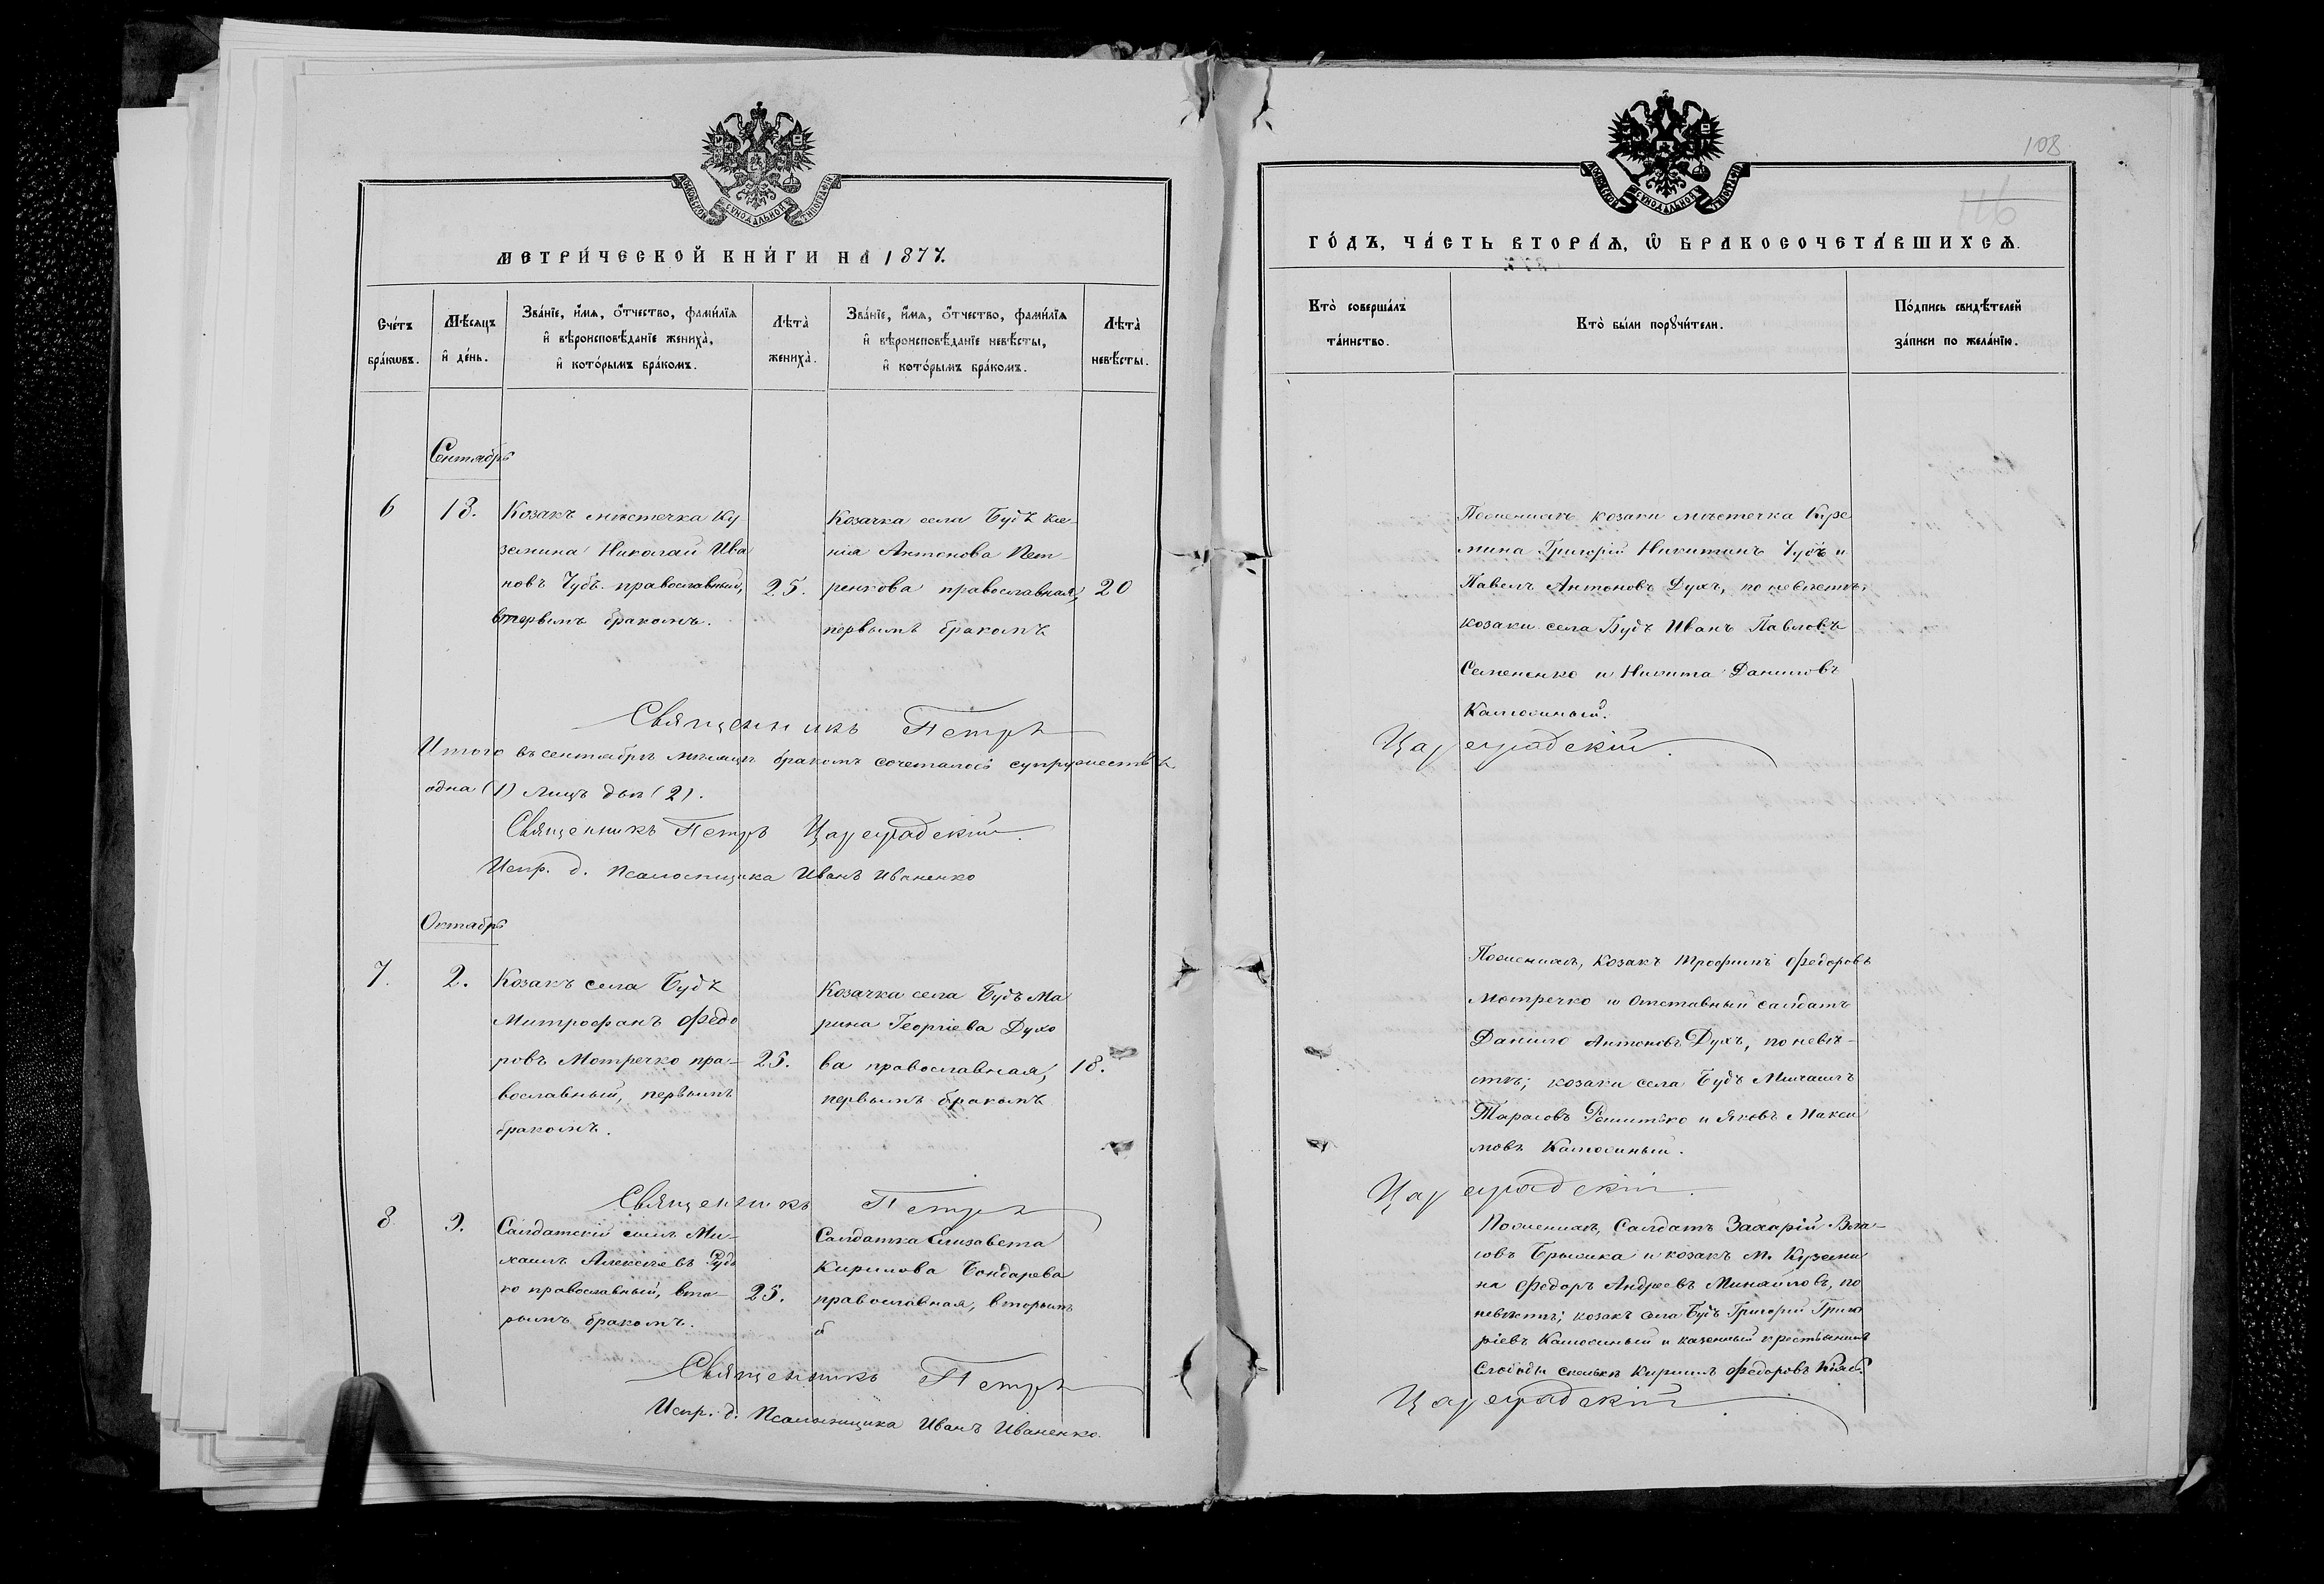 МОСКОВСКОЙ СѴНОДАЛЬНОЙ ТИПОГРАФІИ
МЕТРИ́ЧЕСКОЙ КНИ́ГИ НА 1877.
Сче́тъ бра́ковъ.
Мѣ́сяцъ и҆ де́нь.
Зва́нїе, и҆́мѧ, ѻ҆́тчество, фами́лїѧ
и҆ вѣроисповѣ́данїе жениха̀,
и҆ кото́рымъ бра́комъ.
Лѣта̀ жениха̀.
Зва́нїе, и҆́мѧ, ѻ҆́тчество, фами́лїѧ
и҆ вѣроисповѣ́данїе невѣ́сты,
и҆ кото́рымъ бра́комъ.
Лѣта̀ невѣ́сты.
Сентябрь
6
13.
Козакъ мѣстечка Ку
земина Николай Ива
новъ Чубъ православный,
вторымъ бракомъ.
25.
Козачка села Будъ Ксе-
нія Антонова Пет-
ренкова православная,
первымъ бракомъ
20
Священникъ Петръ
Итого въ сентябрѣ мѣсяцѣ бракомъ сочеталось супружествъ
одна (1) лицъ два (2).
Священникъ Петръ Цареградскій.
Испр. д. Псаломщика Иванъ Иваненко
Октябрь
7.
2.
Козакъ села Будъ
Митрофанъ Ѳедо
ровъ Мотречко пра-
вославный, первымъ
бракомъ.
25.
Козачка села Будъ Ма
рина Георгіева Духо
ва православная,
первымъ бракомъ
18.
Священникъ Петръ
8
9.
Салдатскій сынъ Ми-
хаилъ Алексѣевъ Рудь
ко православный, вто-
рымъ бракомъ.
25.
Салдатка Елисавета
Кирилова Бондарева
православная, вторымъ
б
Священникъ Петръ
Испр. д. Псаломщика Иванъ Иваненко.
108
116
МОСКОВСКОЙ СѴНОДАЛЬНОЙ ТИПОГРАФІИ
ГО́ДЪ, ЧА́СТЬ ВТОРА́Ѧ, Ѡ҆ БРАКОСОЧЕТА́ВШИХСѦ.
Кто̀ соверша́лъ
та́инство.
Кто̀ бы́ли порꙋчи́тели.
По́дпись свидѣ́телей
за́писи по жела́нїю.
По женихѣ козаки мѣстечка Кузе
мина Григорій Никитинъ Чубъ и
Павелъ Антоновъ Духъ, по невѣстѣ,
козаки села Будъ Иванъ Павловъ
Семененко и Никита Даниловъ
Калюжный.
Цареградскій.
По женихѣ, козакъ Трофимъ Ѳедоровъ
Мотречко и отставный салдатъ
Даніилъ Антоновъ Духъ, по невѣ-
стѣ; козаки села Будъ Михаилъ
Тарасовъ и Яковъ Макси
мовъ Калюжный.
Цареградскій.
По женихѣ, Салдатъ Захарій Вла-
совъ и козакъ м. Куземи
на Ѳедоръ Андреевъ Михайловъ, по
невѣстѣ; козакъ села Будъ Григорій Григо
ріевъ Калюжный и казенный крестьянинъ
Слободы Кирилъ Ѳедоровъ
Цареградскій